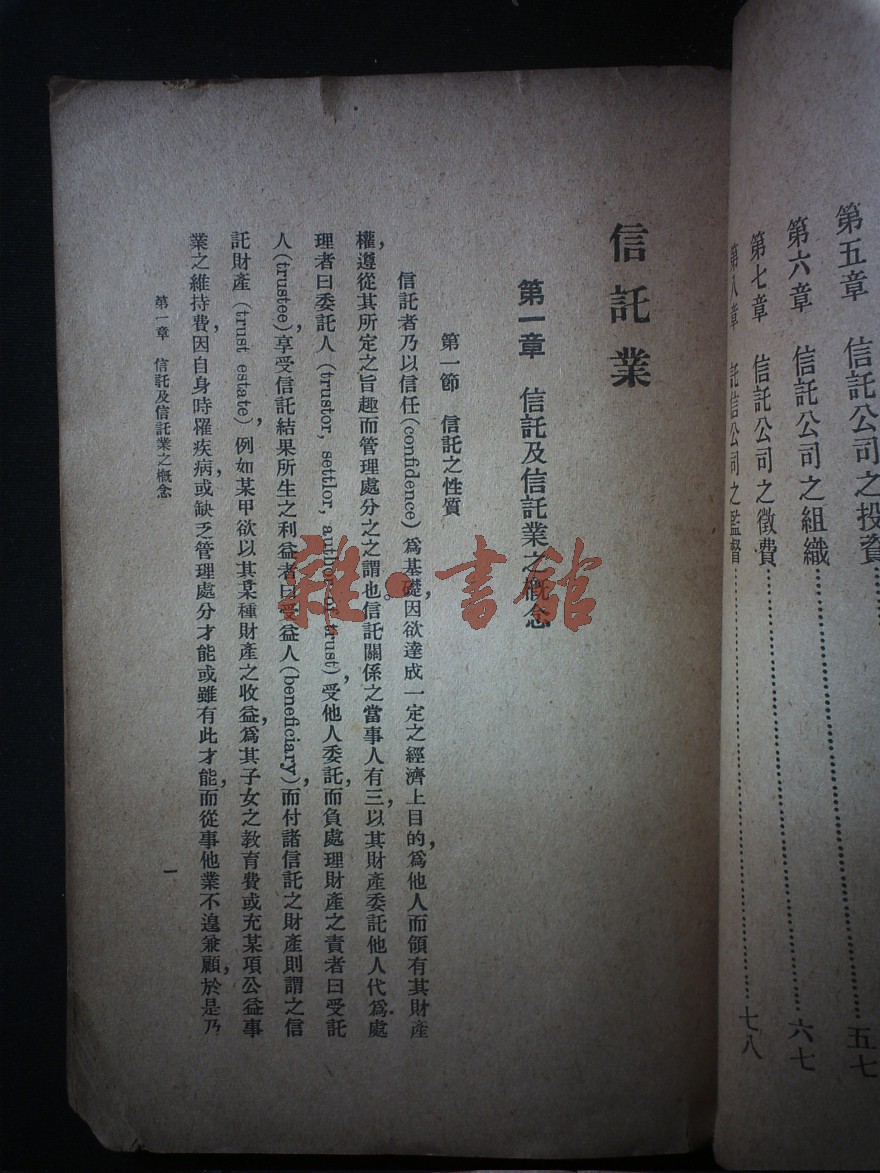 第五章 信託公司之投資……五七
第六章 信託公司之組織……六七
第七章 信託公司之徵費……七八
第八章 託信公司之監督……
信託業
第一章 信託及信託業之概念
第一節 信託之性質
信託者乃以信任(confidence)爲基礎，因欲達成一定之經濟上目的，爲他人而領有其財產
權，遵從其所定之旨趣而管理處分之之謂也。信託關係之當事人有三，以其財產委託他人代爲處
理者曰委託人(trustor, settlor, author of trust)，受他人委託，而負處理財產之責者曰受託
人(trustee)，享受信託結果所生之利益者曰受益人(beneficiary)，而付諸信託之財產則謂之信
託財產(trust estate)，例如某甲欲以其某種財產之收益，爲其子女之教育費或充某項公益事
業之維持費，因自身時罹疾病，或缺乏管理處分才能或雖有此才能，而從事他業不遑兼顧，於是乃
第一章 信託及信託業之概念
一
雜·書館